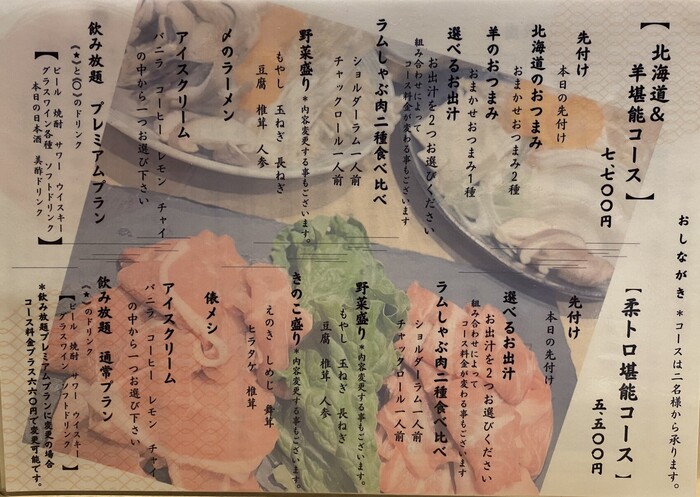 おしながき ＊コースは二名様から承ります。
【北海道＆
羊堪能コース】
七、七〇〇円
先付け
本日の先付け
北海道のおつまみ
おまかせおつまみ2種
羊のおつまみ
おまかせおつまみ1種
選べるお出汁
お出汁を2つお選びください
組み合わせによって
コース料金が変わる事もございます
ラムしゃぶ肉二種食べ比べ
ショルダーラム一人前
チャックロール一人前
野菜盛り＊内容変更する事もございます。
もやし 玉ねぎ 長ねぎ
豆腐 椎茸 人参
〆のラーメン
アイスクリーム
バニラ コーヒー レモン チャイ
の中から一つお選び下さい
飲み放題 プレミアムプラン
（★）と（◎）のドリンク
【ビール 焼酎 サワー ウイスキー
グラスワイン各種 ソフトドリンク
本日の日本酒 美酢ドリンク】
【柔トロ堪能コース】
五、五〇〇円
先付け
本日の先付け
選べるお出汁
お出汁を2つお選びください
組み合わせによって
コース料金が変わる事もございます
ラムしゃぶ肉二種食べ比べ
ショルダーラム一人前
チャックロール一人前
野菜盛り＊内容変更する事もございます。
もやし 玉ねぎ 長ねぎ
豆腐 椎茸 人参
きのこ盛り＊内容変更する事もございます。
えのき しめじ 舞茸
ヒラタケ 椎茸
俵メシ
アイスクリーム
バニラ コーヒー レモン チャイ
の中から一つお選び下さい
飲み放題 通常プラン
（★）のドリンク
【ビール 焼酎 サワー ウイスキー
グラスワイン ソフトドリンク】
＊飲み放題プレミアムプランに変更の場合
コース料金プラス六六〇円で変更可能です。